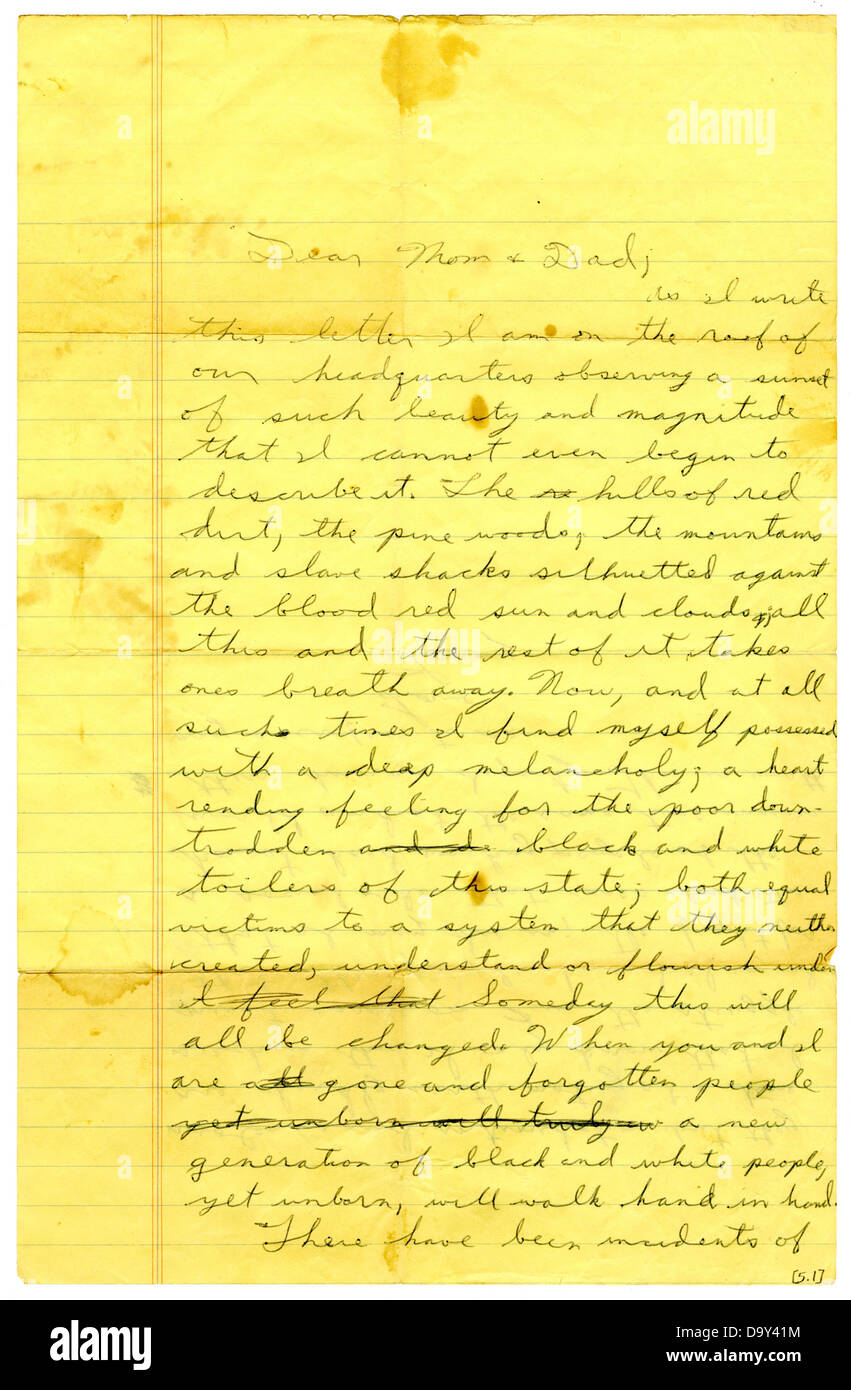 Dear Mom & Dad;
as I write
this letter I am on the roof of
our headquarters observing a sunset
of such beauty and magnitude
that I cannot even begin to
describe it. The re hills of red
dirt, the pine woods, the mountains
and slave shacks silhuetted against
the blood red sun and clouds; all
this and the rest of it takes
ones breath away. Now, and at all
such times I find myself possessed
with a deep melancholy; a heart
rending feeling for the poor down-
trodden and de black and white
toilers of this state; both equal
victims to a system that they neither
created, understand or flourish under
I feel that Someday this will
all be changed. When you and I
are all gone and forgotten people
yet unborn will truly w a new
generation of black and white people,
yet unborn, will walk hand in hand.
There have been incidents of
[5.1]
alamy
D9Y41M
www.alamy.com